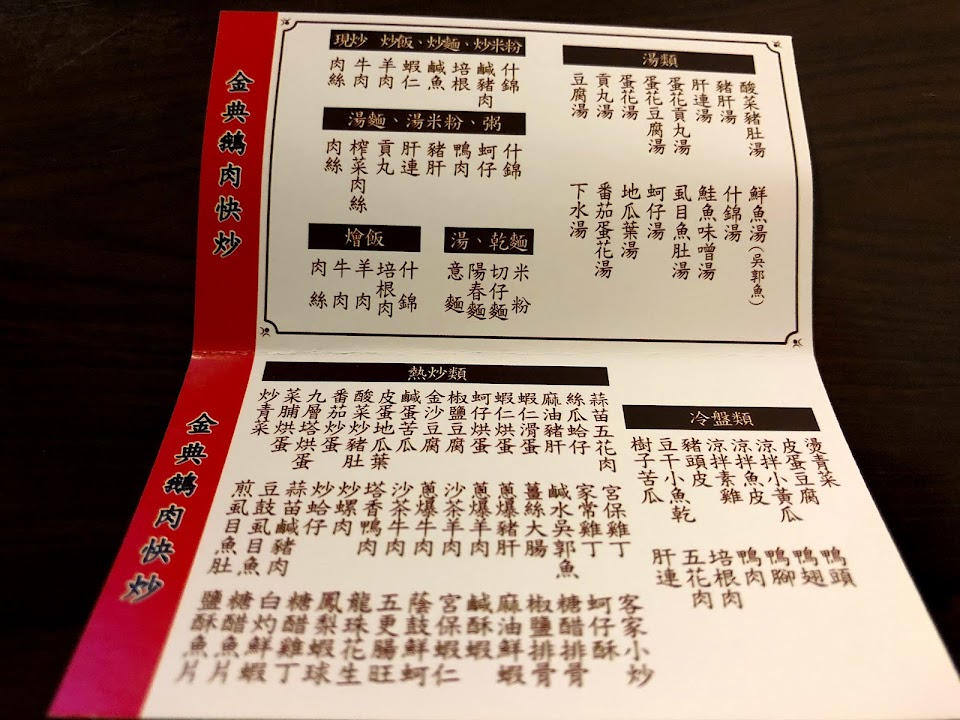 金典鵝肉快炒
湯類
酸菜豬肚湯
豬肝湯
肝連湯
蛋花貢丸湯
蛋花豆腐湯
蛋花湯
貢丸湯
豆腐湯
鮮魚湯(吳郭魚)
什錦湯
鮭魚味噌湯
虱目魚肚湯
蚵仔湯
地瓜葉湯
番茄蛋花湯
下水湯
現炒 炒飯、炒麵、炒米粉
什錦
鹹豬肉
培根
鹹魚
蝦仁
羊肉
牛肉
肉絲
湯麵、湯米粉、粥
什錦
蚵仔
鴨肉
豬肝
肝連
貢丸
榨菜肉絲
肉絲
湯、乾麵
米粉
切仔麵
陽春麵
意麵
燴飯
什錦
培根肉
羊肉
牛肉
肉絲
金典鵝肉快炒
冷盤類
燙青菜
皮蛋豆腐
涼拌小黃瓜
涼拌魚皮
涼拌素雞
豬頭皮
豆干小魚乾
樹子苦瓜
鴨頭
鴨翅
鴨腳
鴨肉
培根肉
五花肉
肝連
熱炒類
蒜苗五花肉
絲瓜蛤仔
麻油豬肝
蝦仁滑蛋
蝦仁烘蛋
蚵仔烘蛋
椒鹽豆腐
金沙豆腐
鹹蛋苦瓜
皮蛋地瓜葉
酸菜炒豬肚
番茄炒蛋
九層塔烘蛋
菜脯烘蛋
炒青菜
宮保雞丁
家常雞丁
鹹水吳郭魚
薑絲大腸
蔥爆豬肝
蔥爆羊肉
沙茶羊肉
蔥爆牛肉
沙茶牛肉
塔香鴨肉
炒螺肉
炒蛤仔
蒜苗鹹豬肉
豆鼓虱目魚
煎虱目魚肚
客家小炒
蚵仔酥
糖醋排骨
椒鹽排骨
麻油鮮蝦
鹹酥蝦
宮保蝦仁
蔭鼓鮮蚵
五更腸旺
龍珠花生
鳳梨蝦球
糖醋雞丁
白灼鮮蝦
糖醋魚片
鹽酥魚片